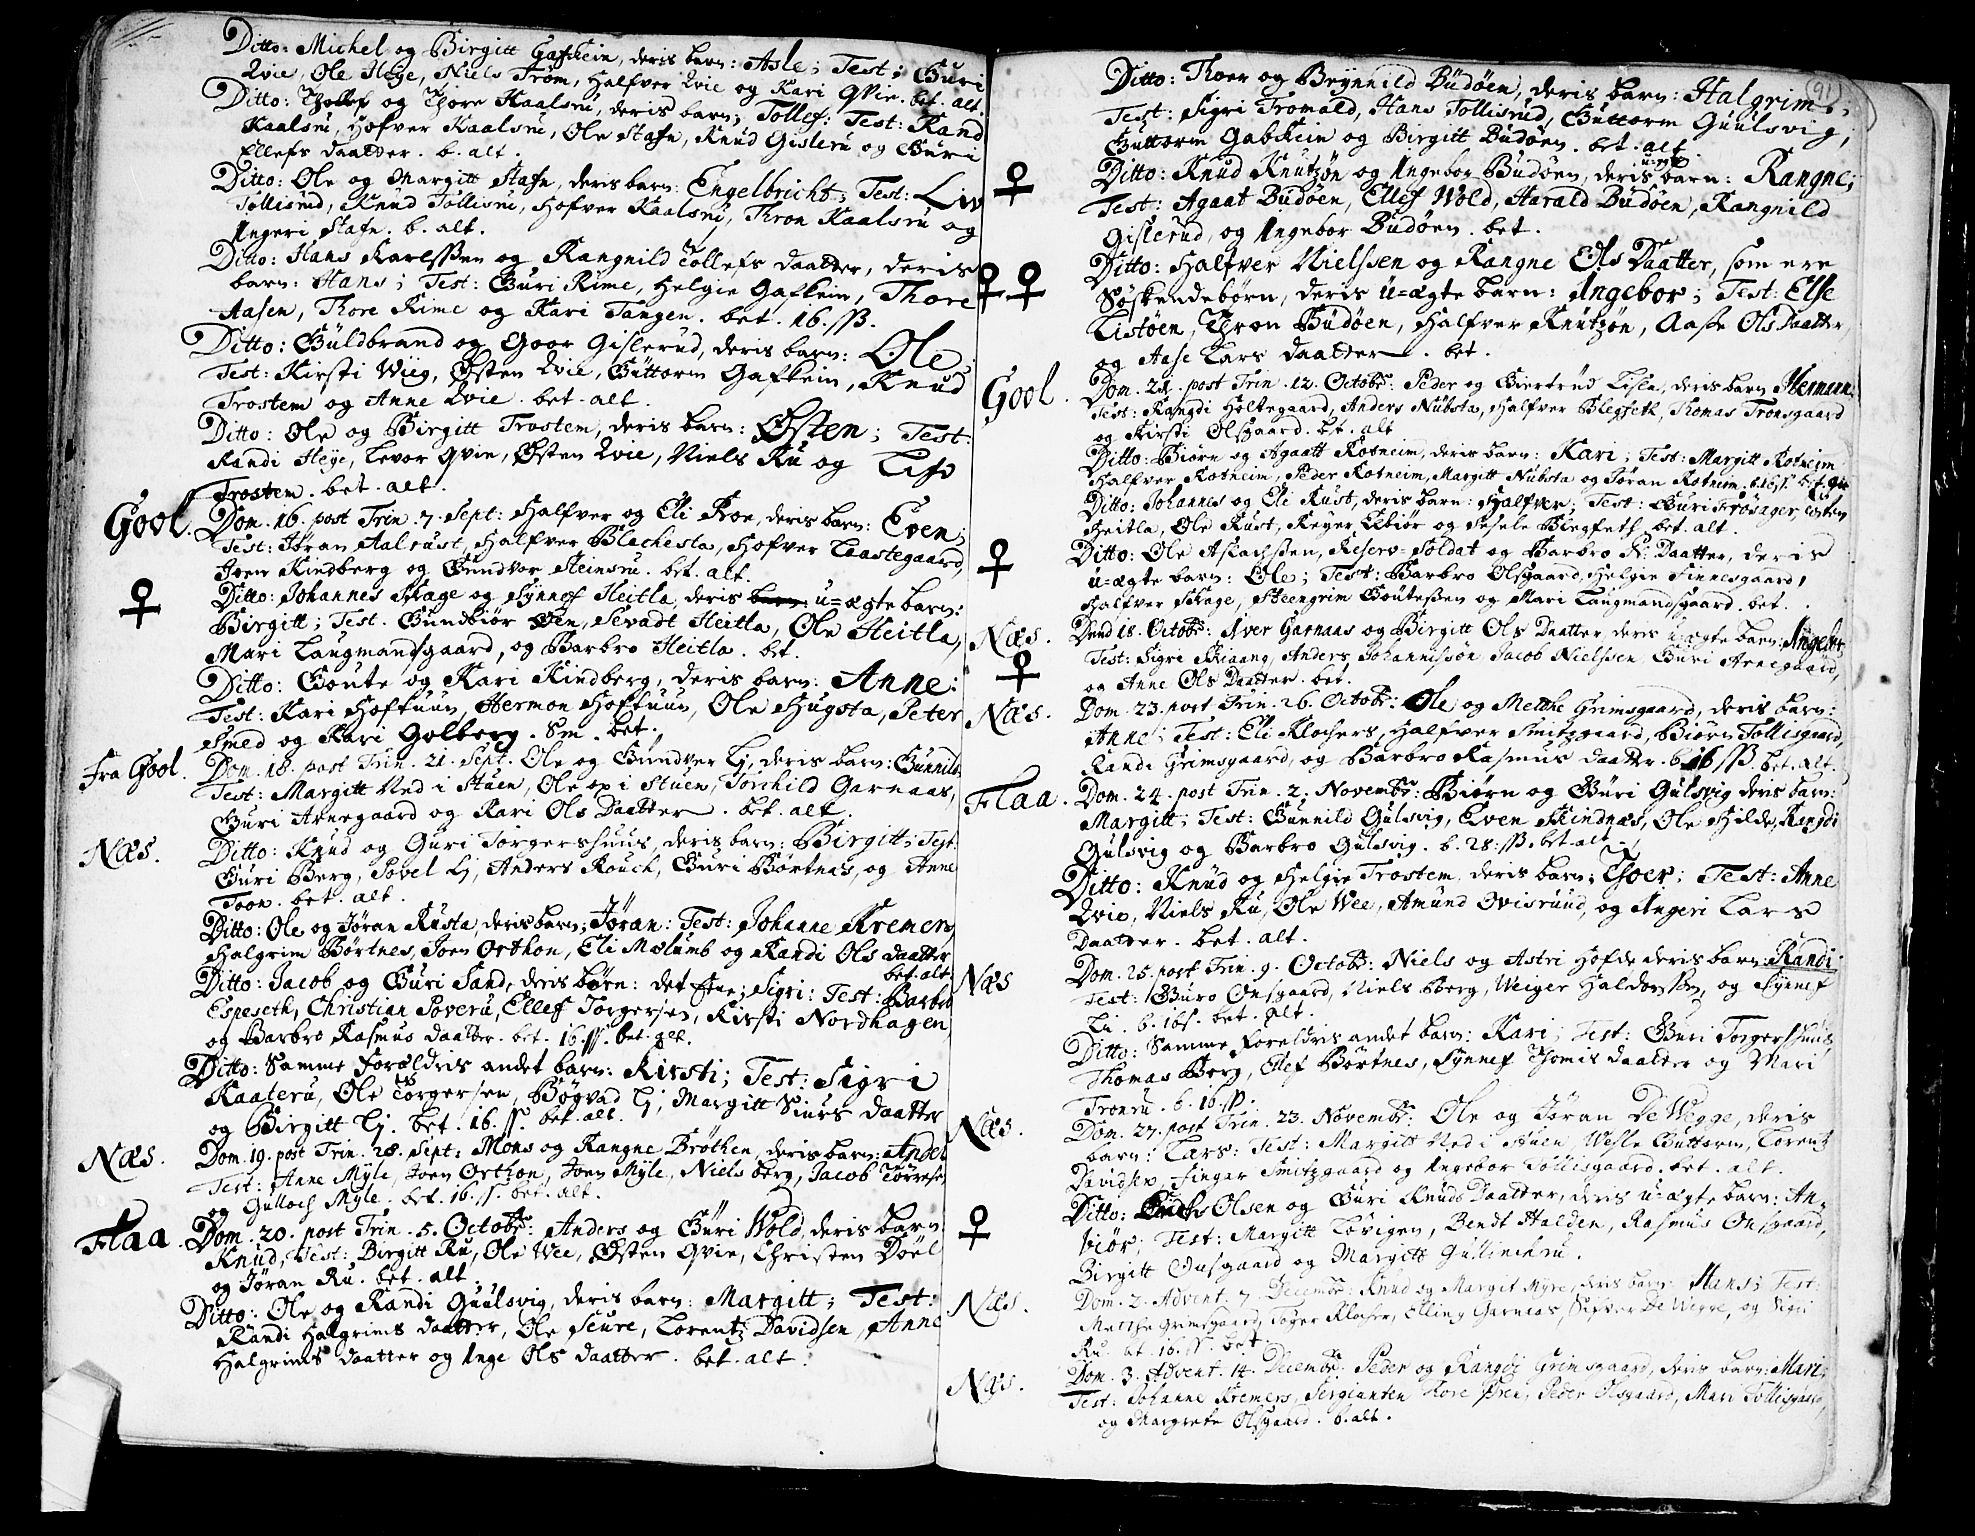 Ditto: Michel og Birgitt Gafkein, deris barn: Asle; Test: Guri
Qvie, Ole Heye, Niels Trøm, Halfver Qvie og Kari Qvie. bet. alt.
Ditto: Thollef og Thore Kaalsru, deris barn; Tollef: Test: Rand
Kaalsru, Hofver Kaalsru, Ole Stafn, Knud Gisleru og Guri
Ellefs daatter. b. alt.
Ditto: Ole og Margitt Stafn, deris barn: Engelbricht; Test: Liv
Tollisrud, Knud Tollisru, Hofver Kaalsru, Thron Kaalsru og
Ingeri Stafn. b. alt.
Ditto: Hans Karlssen og Rangnild Tollefs daatter, deris
barn: Hans; Test: Guri Rime, Helgie Gafkein, Thore
Aasen, Thore Rime og Kari Tangen. bet. 16. ss.
Ditto: Guldbrand og Goor Gislerud, deris barn: Ole
Test: Kirsti Wiig, Østen Qvie, Guttorm Gafkein, Knud
Trostem og Anne Qvie. bet. alt.
Ditto: Ole og Birgitt Trostem, deris barn: Østen; Test:
Randi Heye, Levor Qvie, Østen Qvie, Niels Ru og
Trostem. bet. alt.
Gool. Dom. 16. post Trin. 7. Sept: Halfver og Eli Roe, deris barn: Even;
Test: Jøran Aalrust, Halfver Blechesta, Hofver Laastegaard,
Joen Kindberg og Gundvor Steinsru. bet. alt.
Ditto: Johannes Skage og Synnef Heitla, deris u=ægte barn:
Birgitt; Test. Gundbiør Øen, Sevadt Heitla, Ole Heitla,
Mari Laugmandsgaard, og Barbro Heitla. bet.
Ditto: Goute og Kari Kindberg, deris barn: Anne:
Test: Kari Hoftuun, Hermon Hoftuun, Ole Hugsta, Peter
Smed og Kari Golberg. Sm. bet.
Fra Gool. Dom. 18. post Trin. 21. Sept. Ole og Gundver Lj, deris barn: Gunnild
Test: Margitt Ned i Stuen, Ole op i Stuen, Torchild Garnaas,
Guri Arnegaard og Kari Ols Daatter. bet. alt.
Næs. Ditto: Knud og Guri Torgershuus, deris barn: Birgitt; Test:
Guri Berg, Povel Lj, Anders Rouch, Guri Børtnæs, og Anne
Toon. bet. alt.
Ditto: Ole og Jøran Rusta, deris barn; Jøran: Test: Johanne Kremers,
Halgrim Børtnes, Joen Orthon, Eli Mælumb og Randi Ols daatter
bet. alt.
Ditto: Jacob og Guri Sand, deris børn: det Ene; Sigri: Test: Barbro
Espeseth, Christian Poveru, Ellef Torgersen, Kirsti Nordhagen
og Barbro Rasmus daatter. bet. 16. ss. bet. alt.
Ditto: Samme Forældris andet barn: Kirsti; Test: Sigri
Kaateru, Ole Torgersen, Bøgvad Lj, Margitt Siurs daatter
og Birgitt Lj. bet. 16. ss. bet. alt.
Næs. Dom. 19. post Trin. 28. Sept: Mons og Rangne Brøthen, deris barn:
Test: Anne Myle, Joen Orthon, Joen Myle, Niels berg, Jacob
og Gulloch Myle. bet. 16. ss. bet. alt.
Flaa. Dom. 20. post Trin. 5. Octobr: Anders og Guri Wold, deris barn
Knud, Test: Birgitt Ru, Ole Wee, Østen Qvie, Christen Døel
og Jøran Ru. bet. alt.
Ditto: Ole og Randi Guulsvig, deris barn: Margitt; Test:
Randi Halgrims daatter, Ole Seure, Lorentz Davidsen, Anne
Halgrims daatter og Inge Ols daatter. bet. alt.
91
Ditto: Thoer og Brynnild Budøen, deris barn: Halgrim:
Test: Sigri Tromald, Hans Tollisrud, Guttorm Guulsvig,
Guttorm Gabkein og Birgitt Budøen. bet. alt.
Ditto: Knud Knutzøn og Ingebor Budøen, deris u:egte barn: Rangne;
Test: Agaat Budøen, Ellef Wold, Harald Budøen, Rangnild
Gislerud, og Ingebor Budøen. bet.
Ditto: Halfver Nielssen og Rangne Ols Daatter, som ere
Søskendebørn, deris u=ægte barn: Ingebor; Test: Else
Listøen, Thron Budøen, Halfver Knutzøn, Aase Ols Daatter,
og Aase Lars daatter. bet.
Gool. Dom. 21. post Trin. 12. Octobr: Peder og Giertrud Lislia, deris barn Hermann
Test: Rangdi Holtegaard, Anders Nubsta, Halfver Blegseth, Thomas Tronsgaard
og Kirsti Olsgaard. bet. alt
Ditto: Biørn og Agaatt Rotneim, deris barn: Kari; Test: Margitt Rotneim
Halfver Rotneim, Peder Rotneim, Margitt Nubsta og Jøran Rotneim. b. 16. s.
Ditto: Johannes og Eli Rust, deris barn: Halfver; Test: Guri Frøsager
Heitla, Ole Rust, Reyer og Sesele Biegseth. bet. alt.
Ditto: Ole Aslachssen, Reserv=Soldat og Barbro N: Daatter, deris
u=ægte barn: Ole; Test: Barbro Olsgaard, Helgie Finnesgaard,
Halfver Skage, Steengrim Goutessen og Mari Laugmandsgaard. bet.
Næs. Dend 18. Octobr: Iver Garnaas og Birgitt Ols Daatter, deris u=ægte barn:
Test: Sigri Skiaang, Anders Johannissøn, Jacob Nielssen, Guri Arnegaard,
og Anne Ols Daatter. bet.
Næs. Dom. 23. post Trin. 26. Octobr: Ole og Metthe Grimsgaard, deris barn:
Anne; Test: Eli Klochers, Halfver Smitzgaard, Biørn Tollisgaard,
Randi Grimsgaard, og Barbro Rasmus daatter. b. 16. ss. bet. alt.
Flaa. Dom. 24. post Trin. 2. Novembr: Biørn og Guri Gulsvig deris barn:
Margitt; Test: Gunnild Gulsvig, Even Skindnæs, Ole Hilde, Rangdi
Gulsvig og Barbro Gulsvig. b. 28: ss. bet. alt.
Ditto: Knud og Helgie Trostem, deris barn; Thoer; Test: Anne
Qvie, Niels Ru, Ole Wee, Amund Ovisruud, og Ingeri Lars
Daatter. bet. alt.
Næs Dom. 25. post Trin. 9. Octobr: Niels og Astri Hofde deris barn: Randi
Test: Guro Onsgaard, Niels berg, Weiger Haldorssøn, og Synnef
Li. b. 16s. bet. alt.
Ditto: Samme Foreldris andet barn: Kari; Test: Guri Torgershuus,
Thomas Berg, Elef Børtnes, Synnef Thomis daatter og Mari
Tronru. b. 16. ss.
Næs. Dom. 27. post Trin. 23. Novembr: Ole og Jøran De Wegge, deris
barn: Lars: Test: Margitt Ned i Stuen, Wesle Guttorm, Lorentz
Davidsen, Finger Smitzgaard og Ingebor Tollisgaard. bet. alt.
Ditto: Olsen og Guri Knuds Daatter, deris u=ægte barn: An-
biør; Test: Margitt Løvigen, Bendt Halden, Rasmus Onsgaard,
Birgitt Onsgaard og Margitt Gullinchru.
Næs. Dom. 2. Advent. 7. Decembr: Knud og Margit Myre, deris barn: Hans; Test:
Metthe Grimsgaard, Tøger Klocher, Elling Garnaas, Sifver De Wegge, og Sigri
Ru. bt. 16. ss. bet.
Næs. Dom. 3. Advent. 14. Decembr: Peder og Rangdi Grimsgaard, deris barn: Mari;
Test: Johanne Kremers, Sergianten Tore Øen, Peder Olsgaard, Mari Tollisgaard,
og Margrete Olsgaard. b. alt.